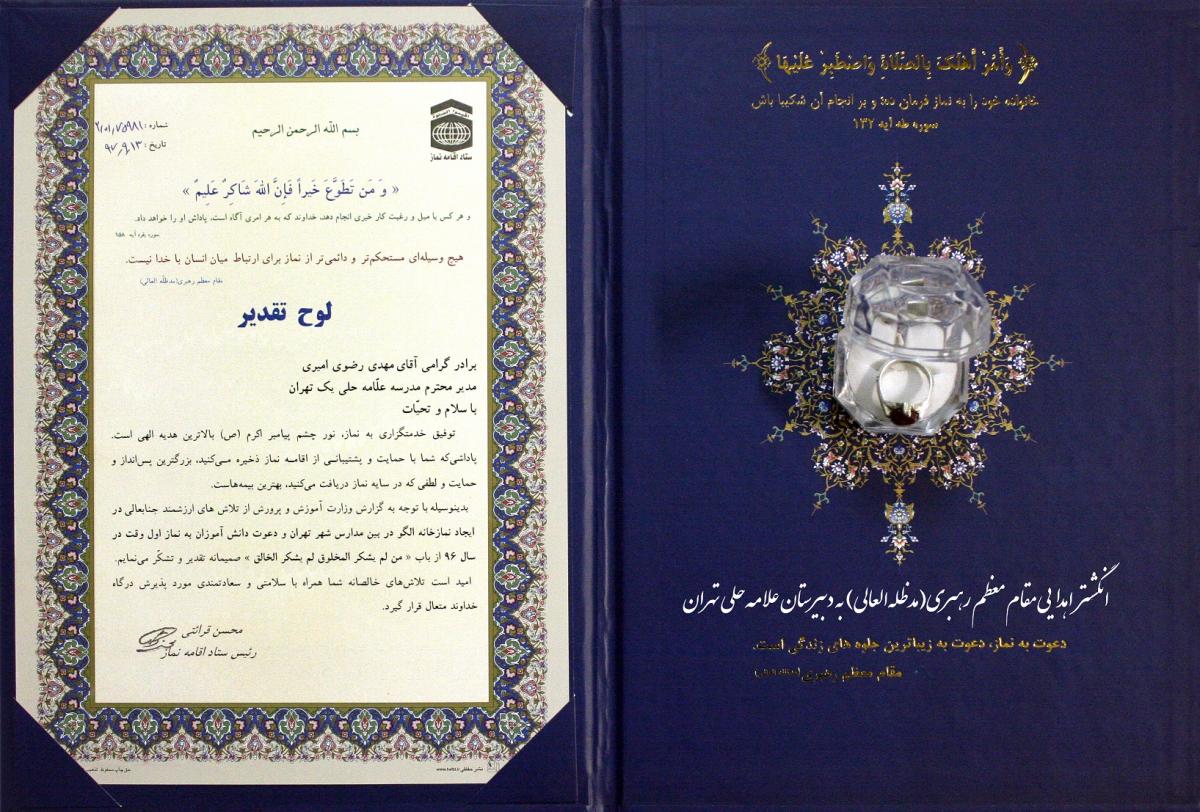 اقیموا الصلوة
ستاد اقامه نماز
بسم الله الرحمن الرحیم
شماره: ۲۱۰۱/۷۵۹۸۱
تاریخ: ۹۷,۹,۱۳
« وَ مَن تَطَوَّعَ خَیراً فَإِنَّ اللهَ شَاکِرٌ عَلِیمٌ »
و هر کس با میل و رغبت کار خیری انجام دهد، خداوند که به هر امری آگاه است، پاداش او را خواهد داد.
سوره بقره آیه ۱۵۸
هیچ وسیله‌ای مستحکم‌تر و دائمی‌تر از نماز برای ارتباط میان انسان با خدا نیست.
مقام معظم رهبری(مدظلّه العالی)
لوح تقدیر
برادر گرامی آقای مهدی رضوی امیری
مدیر محترم مدرسه علّامه حلی یک تهران
با سلام و تحیّات
توفیق خدمتگزاری به نماز، نور چشم پیامبر اکرم (ص) بالاترین هدیه الهی است.
پاداشی‌که شما با حمایت و پشتیبانی از اقامه نماز ذخیره می‌کنید، بزرگترین پس‌انداز و
حمایت و لطفی که در سایه نماز دریافت می‌کنید، بهترین بیمه‌هاست.
بدینوسیله با توجه به گزارش وزارت آموزش و پرورش از تلاش های ارزشمند جنابعالی در
ایجاد نمازخانه الگو در بین مدارس شهر تهران و دعوت دانش آموزان به نماز اول وقت در
سال ۹۶ از باب « من لم یشکر المخلوق لم یشکر الخالق » صمیمانه تقدیر و تشکّر می‌نمایم.
امید است تلاش‌های خالصانه شما همراه با سلامتی و سعادتمندی مورد پذیرش درگاه
خداوند متعال قرار گیرد.
محسن قرائتی
رئیس ستاد اقامه نماز
حق چاپ محفوظ
وَأْمُرْ أَهْلَکَ بِالصَّلَاةِ وَاصْطَبِرْ عَلَیْهَا
خانواده خود را به نماز فرمان ده؛ و بر انجام آن شکیبا باش
سوره طه آیه ۱۳۲
انگشتر اهدایی مقام معظم رهبری(مدظله العالی) به دبیرستان علامه حلی تهران
دعوت به نماز، دعوت به زیباترین جلوه های زندگی است.
مقام معظم رهبری